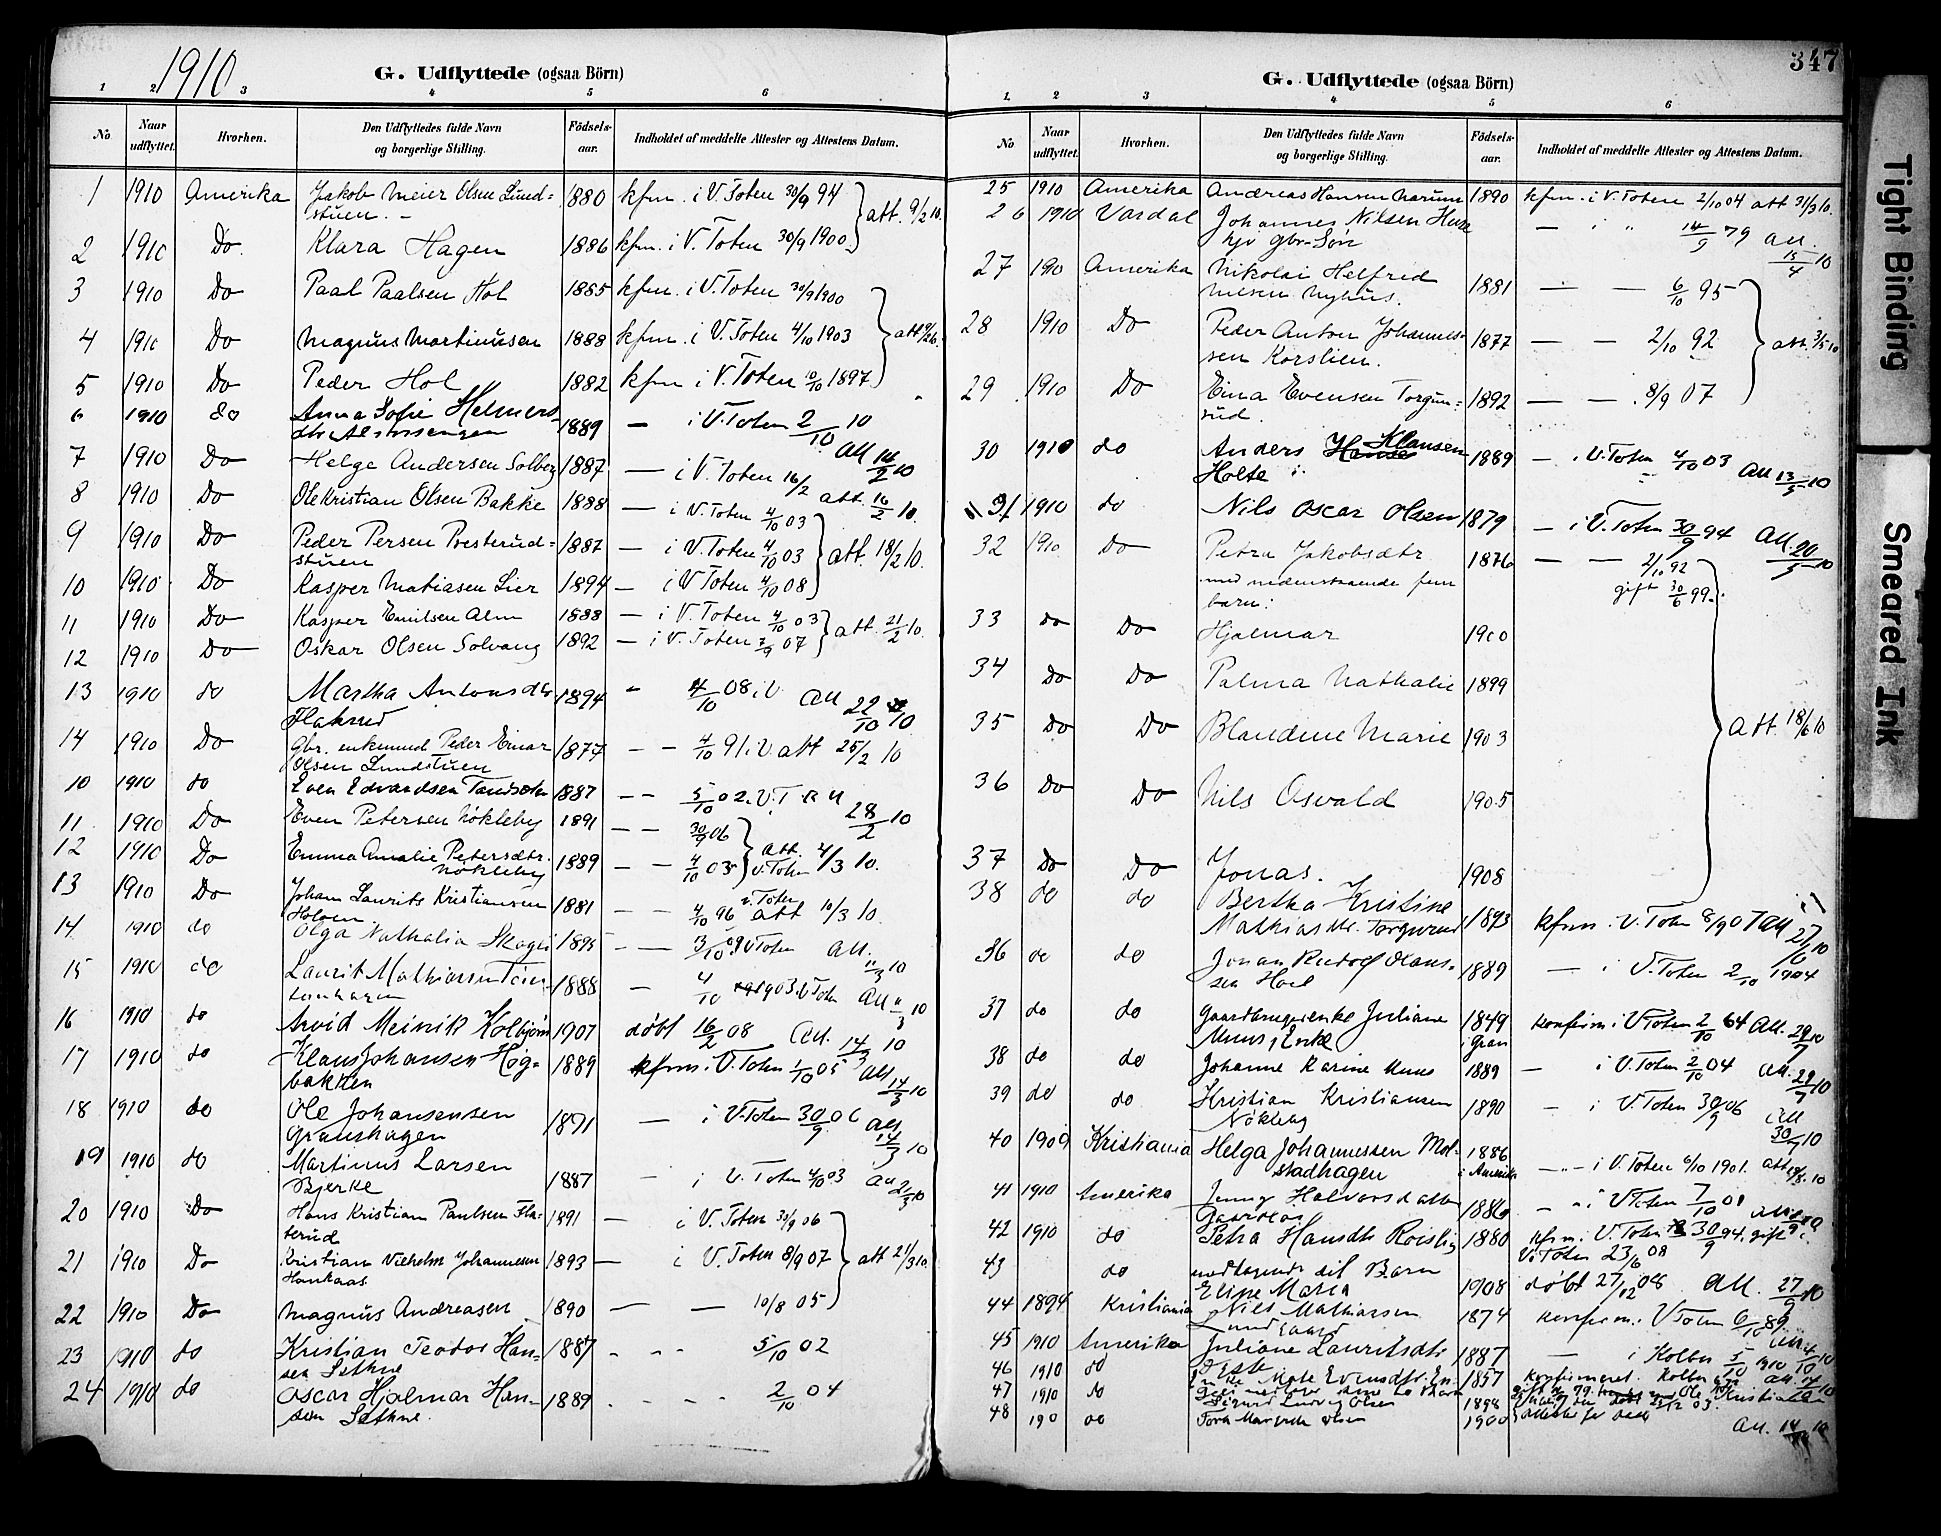 1910
G. Udflyttede (ogsaa Börn)
1 2 3 4 5 6
No Naar udflyttet. Hvorhen. Den Udflyttedes fulde Navn og borgerlige Stilling. Födsels-aar. Indholdet af meddelte Attester og Attestens Datum.
1 1910 Amerika Jakob Meier Olsen Lund- 1880 kfm. i V. Toten 30/9 94
stuen. - att. 9/2 10.
2 1910 Do. Klara Hagen 1886 kfm. i V. Toten 30/9 1900.
3 1910 Do Paal Paalsen Hol 1885 kfm. i V. Toten 30/9 1900
4 1910 Do Magnus Martinusen 1888 kfm. i V. Toten 4/10 1903
5 1910 Do Peder Hol 1882 kfm i V. Toten 10/10 1897
6 1910 do Anna Sofie Helmers-
1889 - i V. Toten 2/10 10
7 1910 Do Helge Andersen Solberg 1887 - i V. Toten 16/2
8 1910 Do Ole Kristian Olsen Bakke 1888 - i V. Toten 4/10 03 att. 16/2 10.
9 1910 Do Peder Persen Presterud- 1887 - i V. Toten 4/10 03 att. 18/2 10.
stuen
10 1910 Do Kasper Matiasen Lier 1894 - i V Toten 4/10 08
11 1910 Do Kasper Emilsen Alm 1888 - i V. Toten 4/10 03 att. 21/2 10.
12 1910 Do Oskar Olsen Solvang 1892 - i V. Toten 7/9 07
13 1910 do Martha Antonsdtr 1894 - 4/10 08 i V
14 1910 Do Gbr. enkemand Peder Einar 1877 - - 4/10 91 i V att 25/2 10
Olsen Lundstuen
10 1910 do Even Edvardsen 1887 - - 5/10 02. V. T. 28/2 10
11 1910 Do Even Petersen Nökleby 1891 - - 30/9 06
12 1910 Do Emma Amalie Petersdtr. 1889 - - 4/10 03 att. 4/3 10.
Nökleby V. Toten
13 1910 Do Johan Laurits Kristiansen 1881 - - 4/10 96 V. Toten att 10/3 10.
14 1910 do Olga Nathalia - - 3/10 V Toten
15 1910 do Laurit Mathiassen 1888 - 4/10 1903 V Toten
16 1910 do Arvid Meinik Kolbjörn 1907 döbt 16/2 08 att. 14/3 10
17 1910 do Klaus Johansen Hög- 1889 kfm. i V. Toten 1/10 05 att 14/3 10
bakken
18 1910 do Ole Johansensen 1891 - i V. Toten 30/9 06 att 14/3 10
Granshagen
19 1910 do Martinus Larsen 1887 - i V. Toten 4/10 03
Bjerke
20 1910 Do Hans Kristian Paulsen Fla- 1891 - i V. Toten 30/9 06
terud
21 1910 Do Kristian Vilhelm Johannesen 1893 - i V. Toten 8/9 07 att 21/3 10.
22 1910 Do Magnus Andreasen 1890 - - 10/8 05
23 1910 do Kristian Teodor Han- 1887 - - - 5/10 02
sen Sethne
24 1910 do Oscar Hjalmar Han- 1889 - - - 2/10 04
sen Sethne.
347
G. Udflyttede (ogsaa Börn)
1. 2 3 4 5 6
No Naar udflyttet. Hvorhen. Den Udflyttedes fulde Navn og borgerlige Stilling. Födsels-aar. Indholdet af meddelte Attester og Attestens Datum.
25 1910 Amerika Andreas Hansen Narum 1890 kfm. i V. Toten 2/10 04 att 31/3 10.
26 1910 Vardal Johannes Nilsen
gbr-Sön - i " 14/9 79 att. 15/4 10
27 1910 Amerika Nikolai Helfred 1881 - - 6/10 95
Nilsen Nyhus.
28 1910 Do Peder Anton Johannes- 1877 - - 2/10 92 att. 3/5 10
sen Korslien.
29 1910 Do Eina Evensen Torgun- 1892 - - 8/9 07
rud.
30 1910 do Anders Klausen 1889 - i V. Toten 4/10 03 att 13/5 10
Holte
31 1910 do Nils Oscar Olsen 1879 - i V. Toten 30/9 94 att. 20/5 10
32 1910 Do Petra Jakobsdtr 1876 - - 2/10 92
med nedenstaaende fem gift 30/6 99.
barn:
33 do Do Hjalmar 1900
34 Do Do Palma Nathalie 1899
35 Do Do Blandine Marie 1903 att. 18/6 10
36 Do Do Nils Osvald 1905
37 Do Do Jonas. 1908
38 do do Bertha Kristine
Mathiasdtr. Torgunrud 1893 kfm. i V. Toten 8/9 07 att 27/6 10
36 do do Johan Rudolf Hans- 1889 - i V. Toten 2/10 1904
sen Hoel
37 do do Gaardbrugerenke Juliane 1849 konfirm. i V Toten 2/10 64 att. 29/7 10
Muus, Enke i Gran
38 do do Johanne Karine Muus 1889 - i V. Toten 2/10 04 att. 29/7 10
39 do do Kristian Kristiansen 1890 - i V. Toten 30/9 06 att 30/7 10
Nökleby
40 1909 Kristiania Helga Johannessen Mol- 1886 -"- i V. Toten 6/10 1901.
stadhagen i Amerika
41 1910 Amerika Jenny Halvorsdatter - " i V Toten 7/10 00
42 1910 do Petra Hansdtr 1880 kfm. i V. Toten 30/9 94. gift i
V. Toten 23/6 08
43 do medtagende sit Barn
Eline Maria 1908 döbt 27/12 08 att. 27/9 10
44 1894 Kristiania Nils Mathiassen 1874 konfirm. i V Toten 6/10 89
45 1910 Amerika Juliane Lauritsdtr 1887 - i Kolbu 5/10
46 1910 do Enke Mate Evensdtr. 1857 konfirmeret i Kolbu
47 1910 do Sigurd Ludvig Olsen 1898
48 1910 do Tora Margrethe Olsen 1900 att. 14/10 10
Tight Binding
Smeared Ink